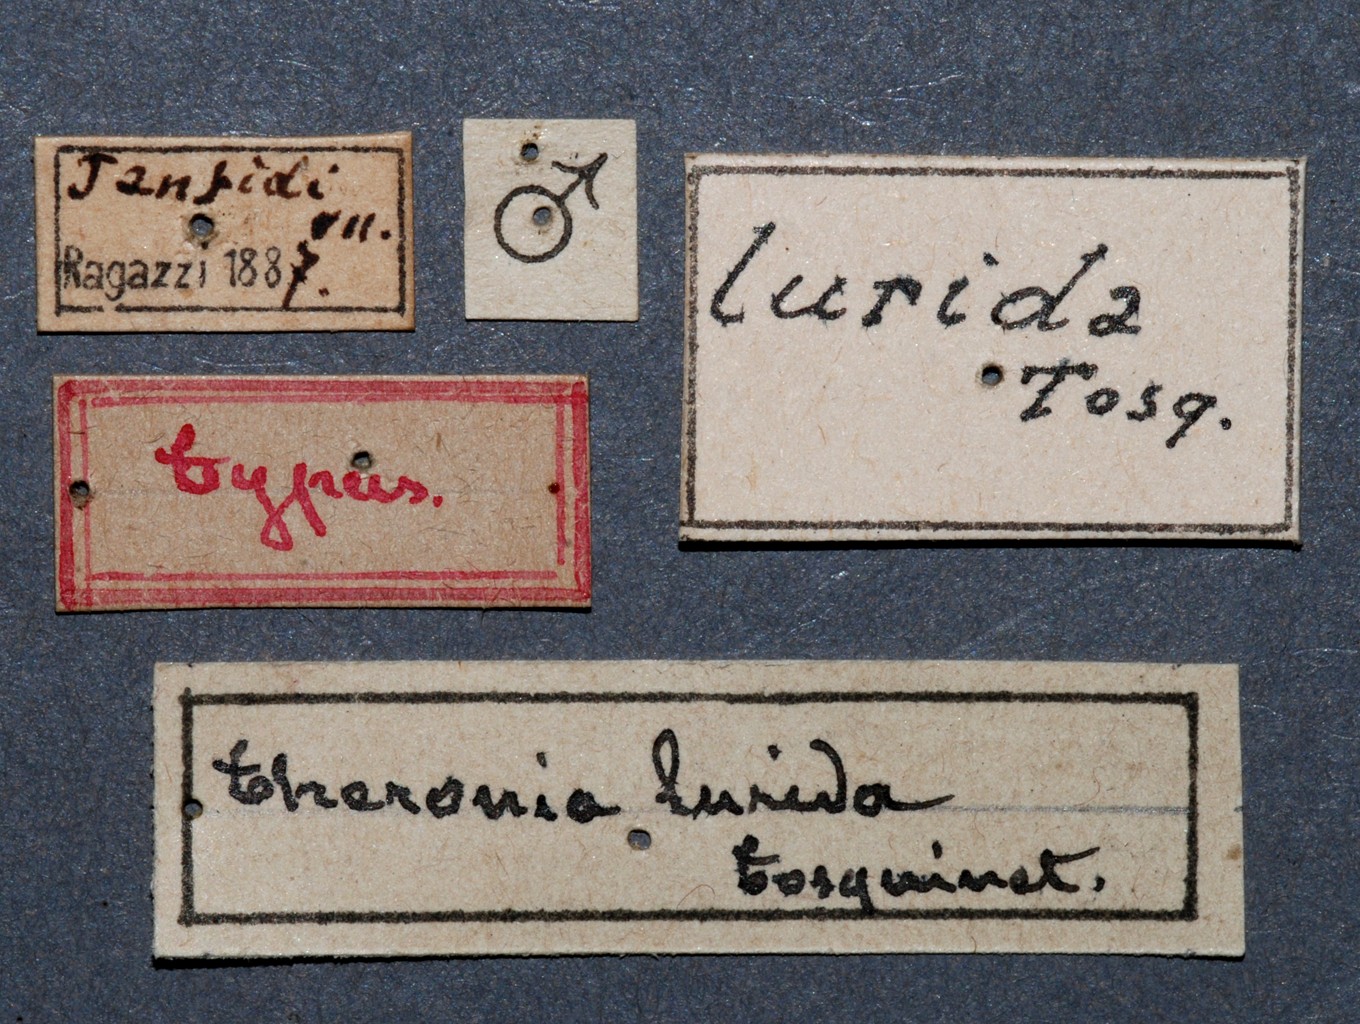 Janfidi
VII.
Ragazzi 1887.
♂
lurida
Tosq.
typus.
theronia lurida
tosquinet.